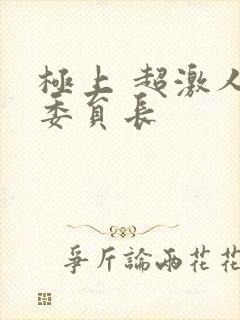 極上 超激人
委員長
爭斤論兩花花